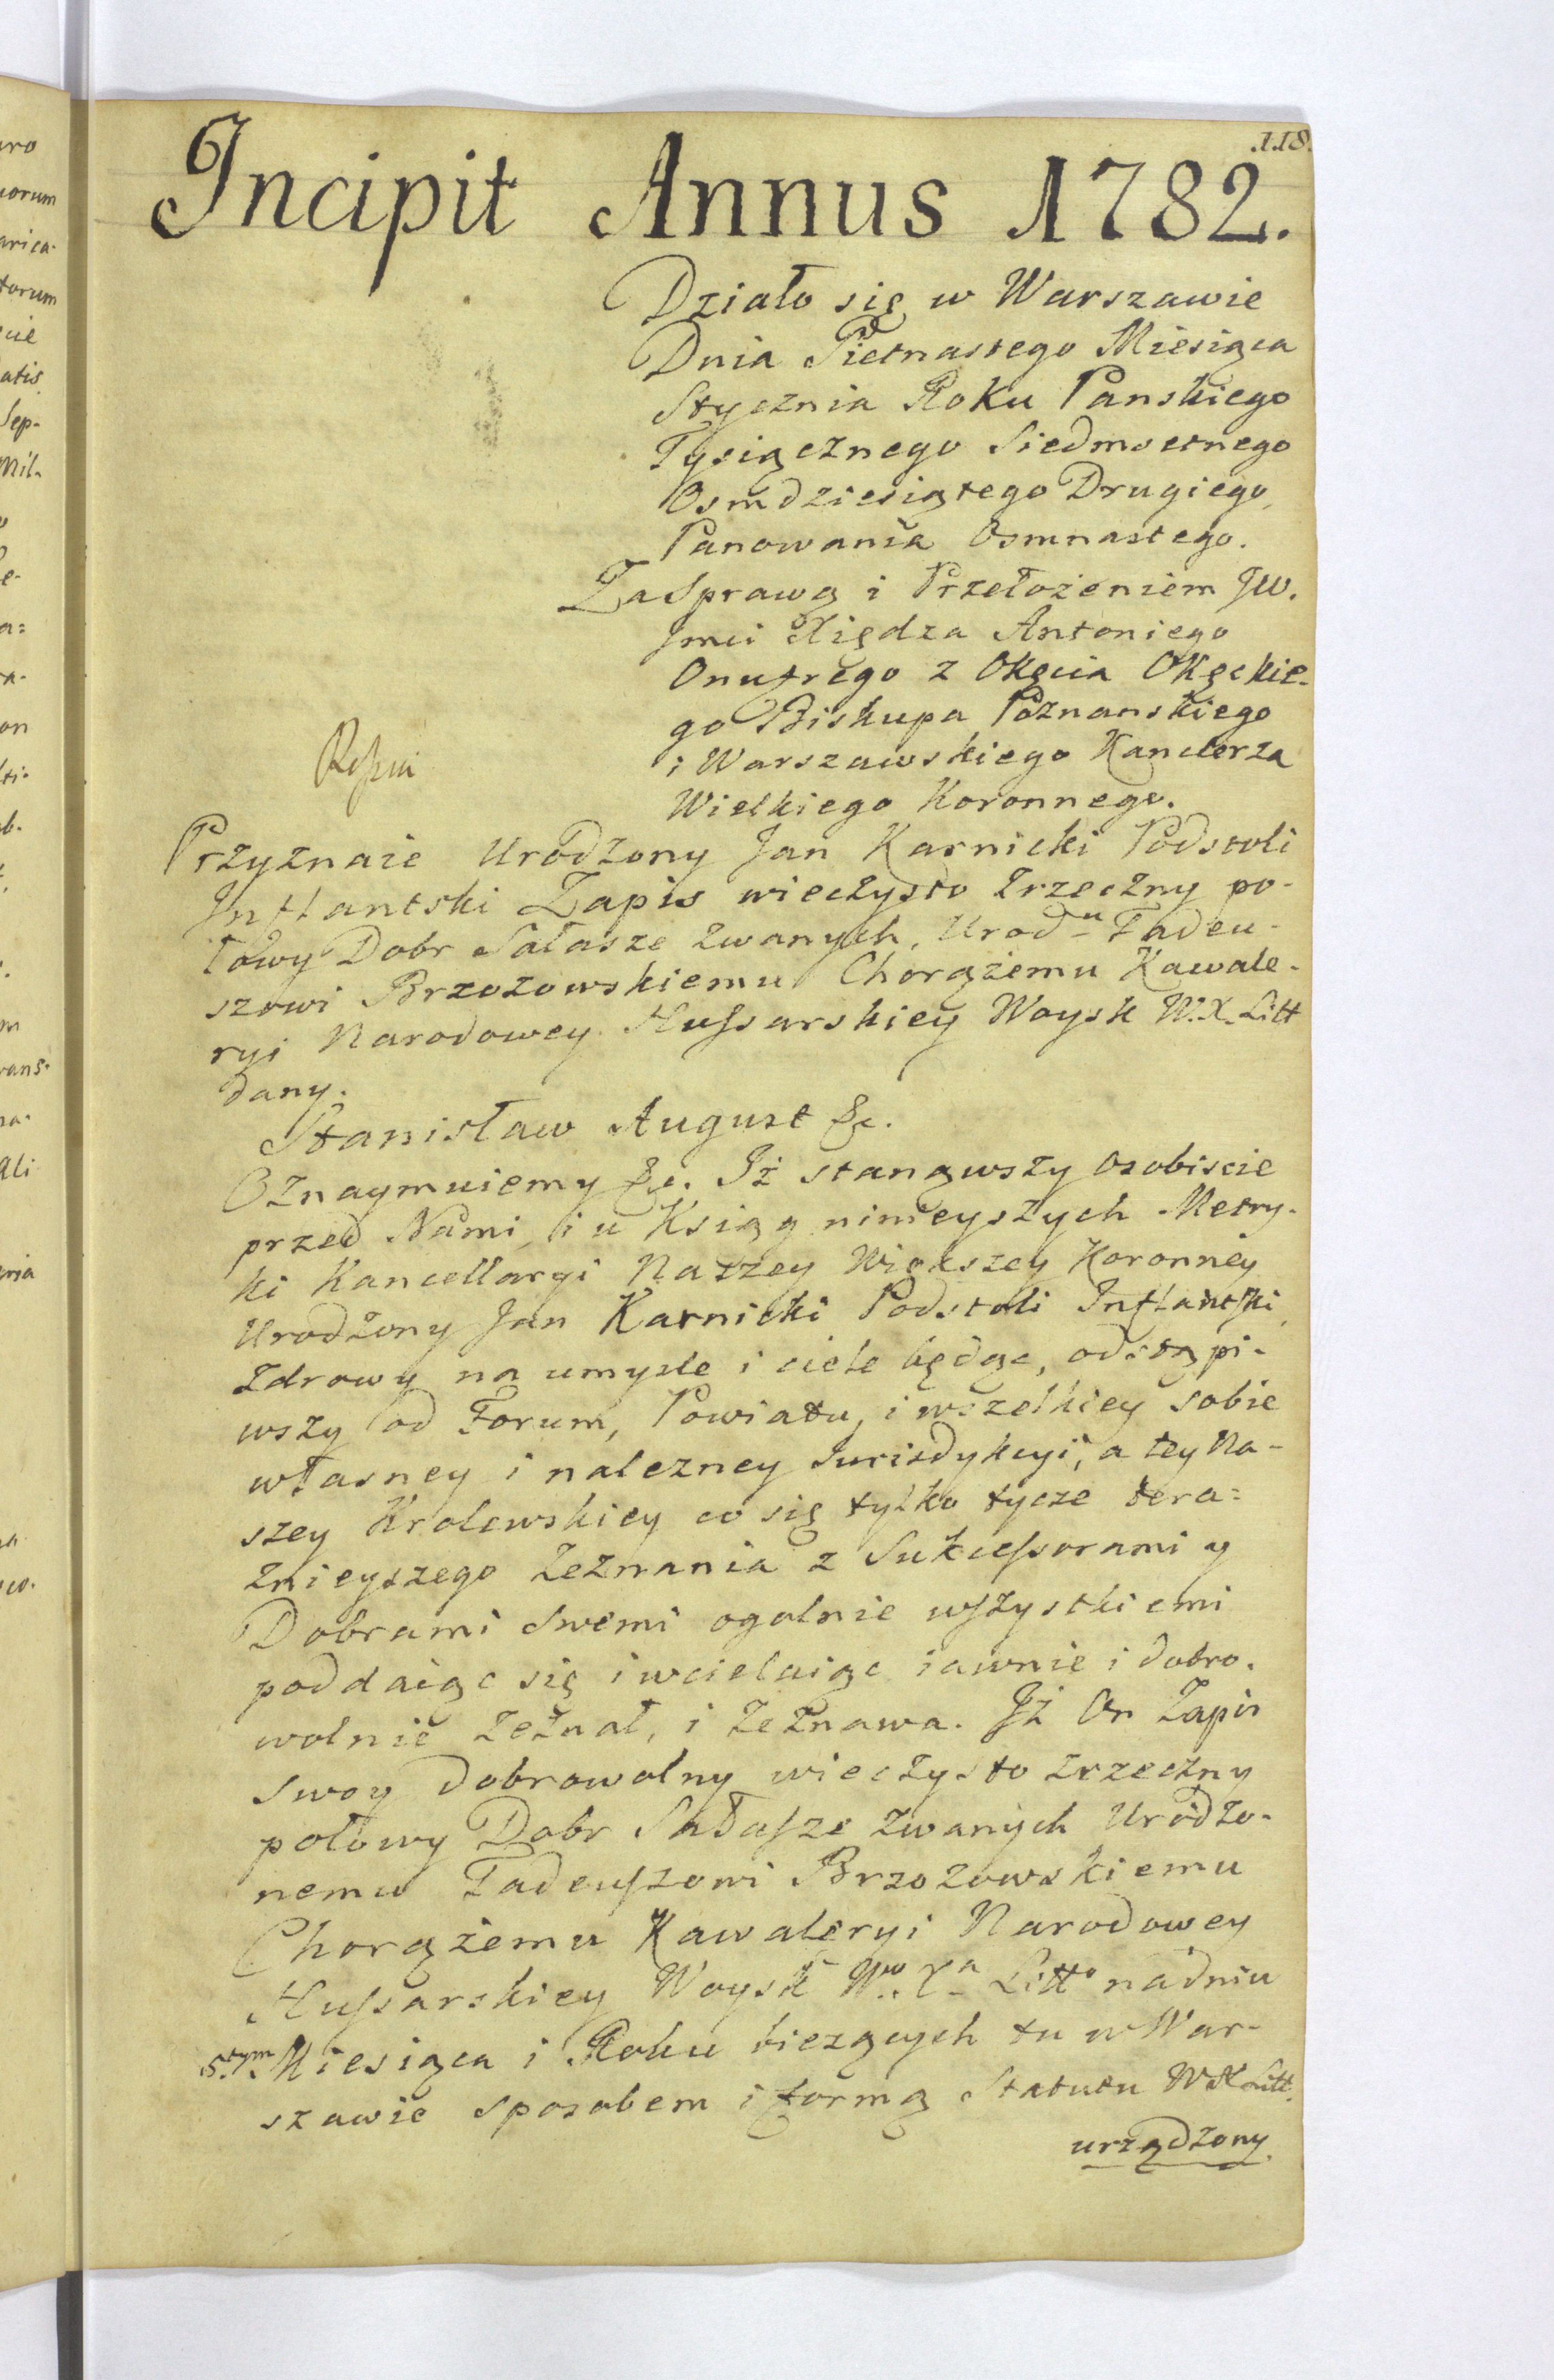 .118.
Incipit Annus 1782.
Działo się w Warszawie
Dnia Pietnastego Miesiąca
Stycznia Roku Panskiego
Tysiącznego Siedmsetnego
Osmdziesiątego Drugiego,
Panowania Osmnastego.
Za Sprawą i Przełożeniem JW.
Jmci Xiędza Antoniego
Onufrego z Okęcia Okęckie-
go Biskupa Poznanskiego
i Warszawskiego Kanclerza
Wielkiego Koronnego.
Przyznaie Urodzony Jan Karnicki Podstoli
Inflantski Zapis wieczysto zrzeczny po-
łowy Dobr Sałasze zwanych, Urod=u Tadeu-
szowi Brzozowskiemu Chorążemu Kawale-
ryi Narodowey Hussarskiey Woysk W.X. Litt
dany.
Stanisław August &c.
Oznaymuiemy &c. Iż stanąwszy osobiscie
przed Nami, i u Xsiąg ninieyszych Metry-
ki Kancellaryi Naszey Większey Koronney
Urodzony Jan Karnicki Podstoli Inflantski
zdrowy na umysle i ciele będąc, odstąpi-
wszy od Forum, Powiatu, i wszelkiey sobie
własney i nalezney Jurisdykcyi, a tey Na-
szey Krolewskiey co się tylko tycze tera=
znieyszego zeznania z Sukcessorami y
Dobrami swemi ogolnie wszystkiemi
poddaiąc się i wcielaiąc iawnie i dobro-
wolnie zeznał, i zeznawa. Iż On Zapis
swoy dobrowolny wieczysto zrzeczny
połowy Dobr Sałasze zwanych Urodzo-
nemu Tadeuszowi Brzozowskiemu
Chorążemu Kawaleryi Narodowey
Hussarskiey Woysk Wo. Xa Litto na dniu
5.tym Miesiąca i Roku bieząych tu w War-
szawie sposobem i formą Statutu WX Litt.
urządzony.